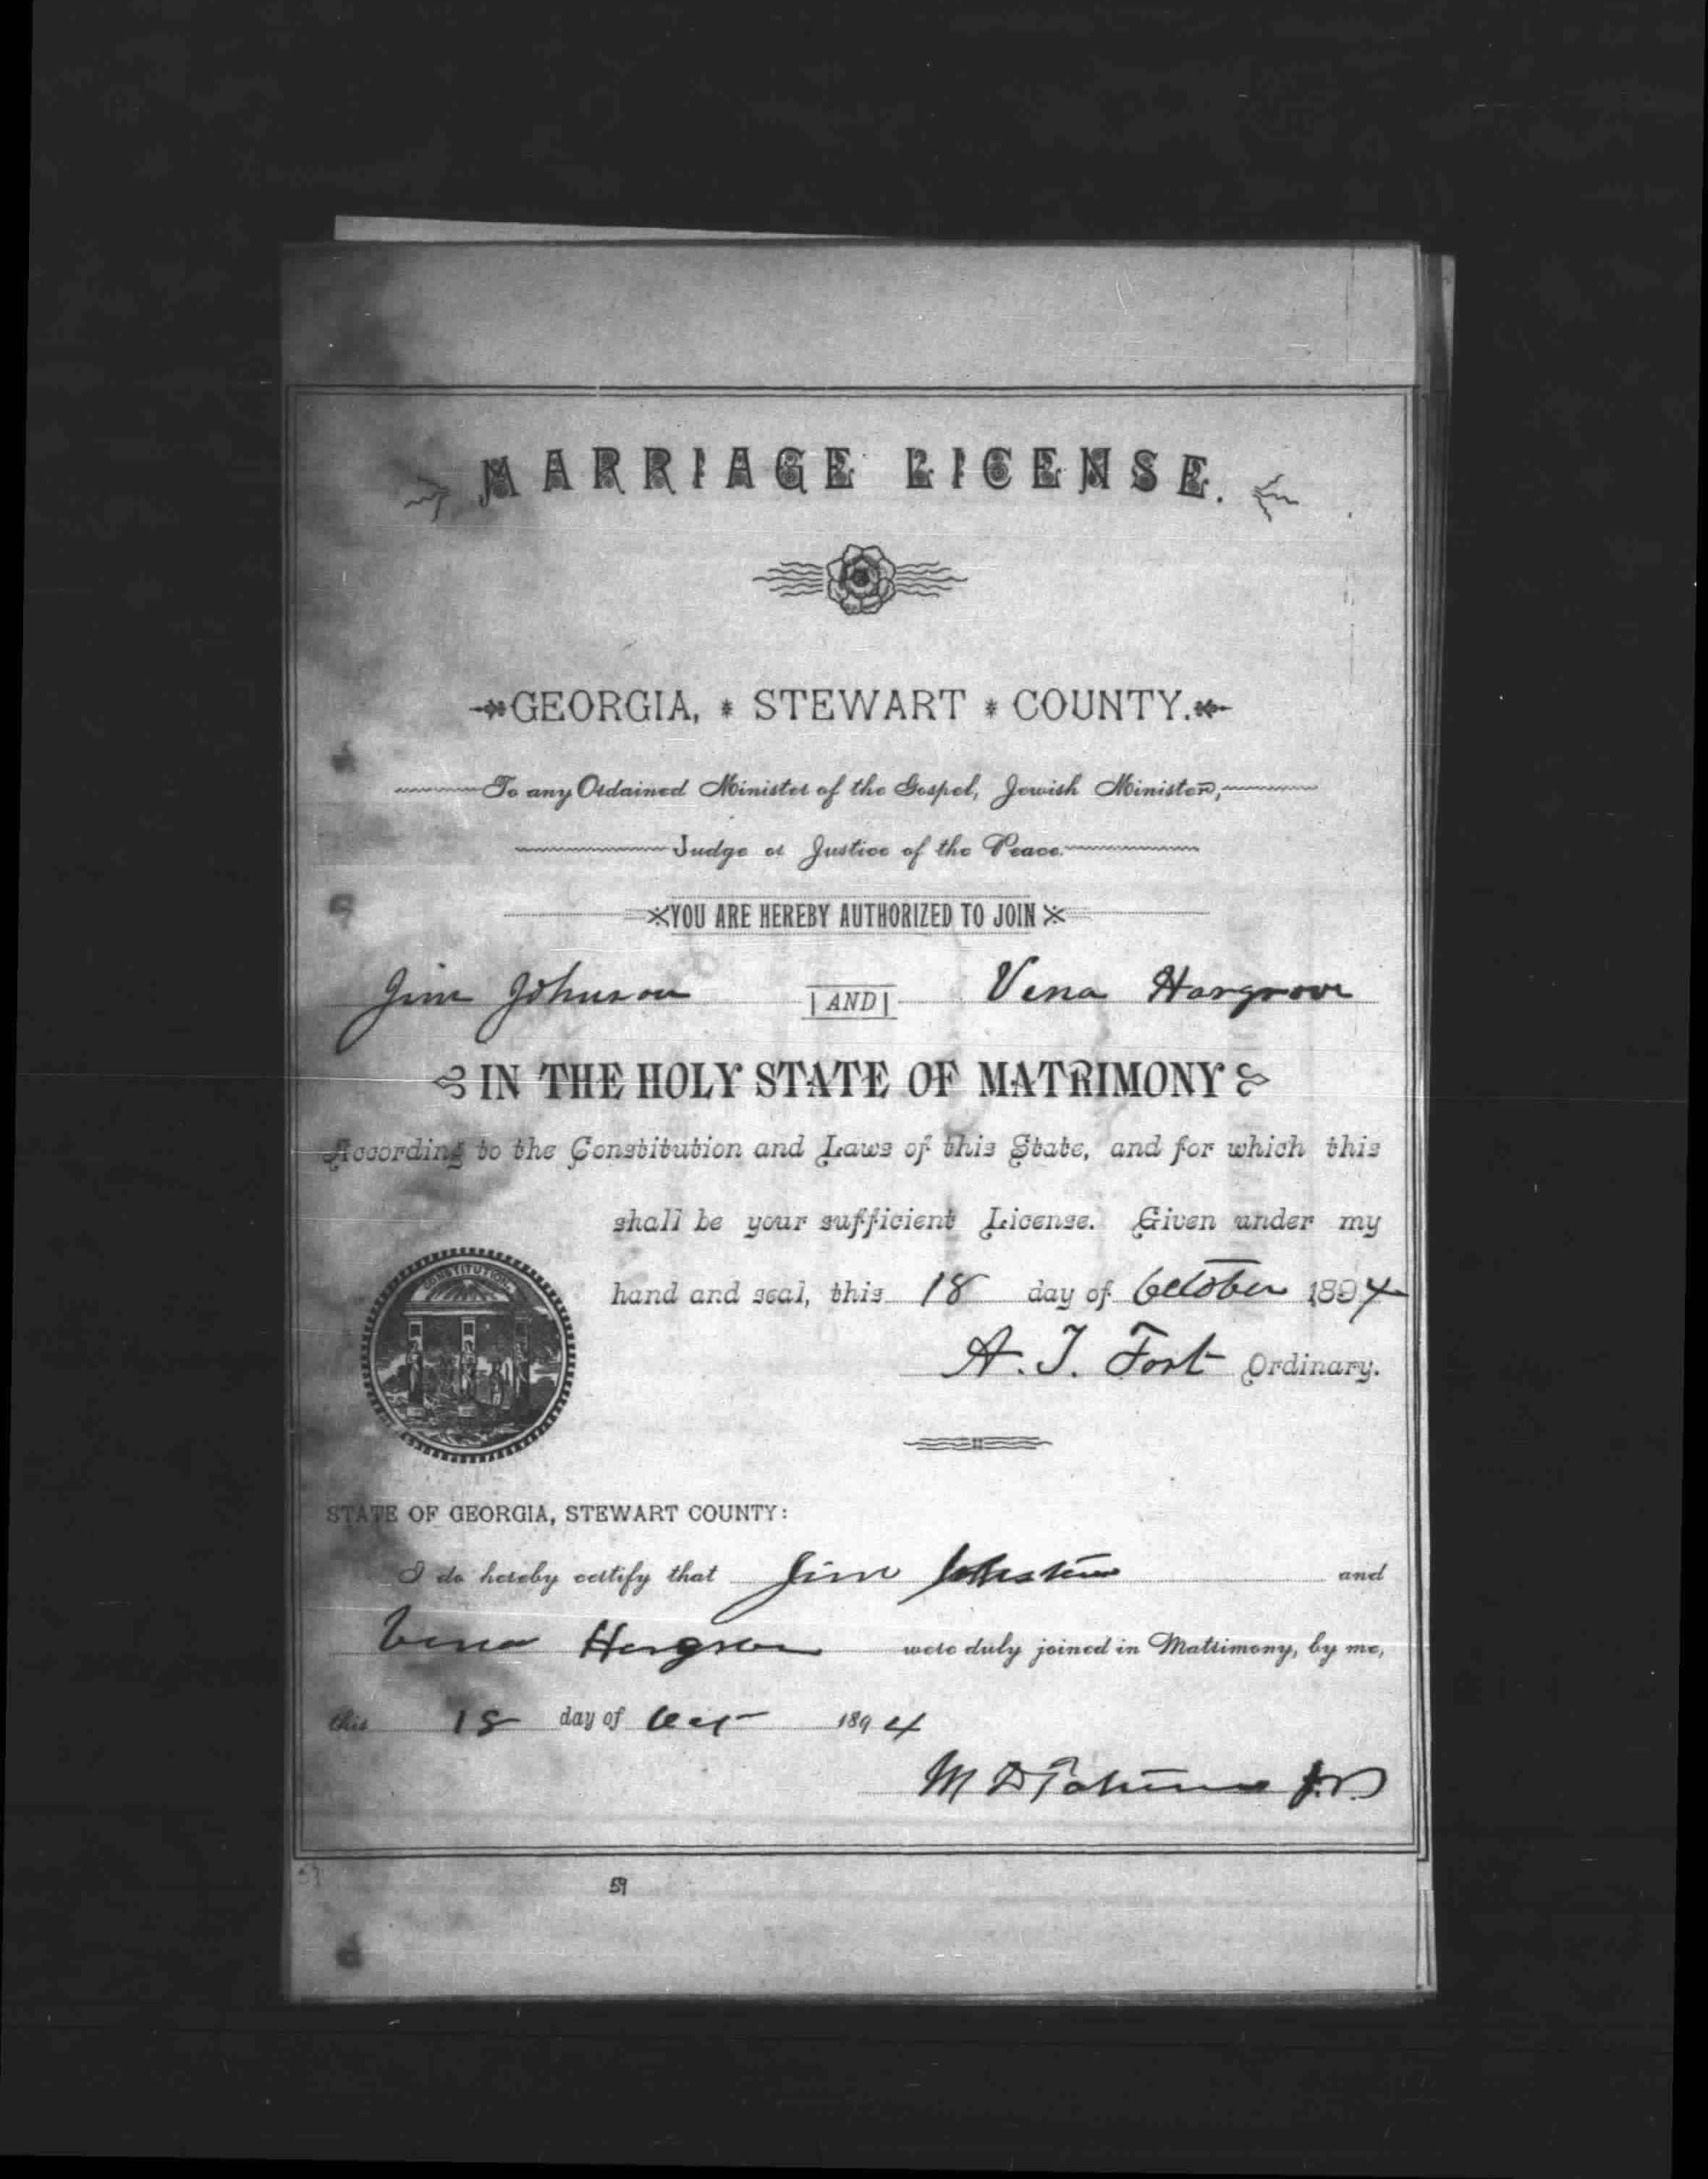 MARRIAGE LICENSE.
GEORGIA, * STEWART * COUNTY.
To any Ordained Minister of the Gospel, Jewish Minister,
Judge or Justice of the Peace.
YOU ARE HEREBY AUTHORIZED TO JOIN
Jim Johnson AND Vena Hargrove
IN THE HOLY STATE OF MATRIMONY
According to the Constitution and Laws of this State, and for which this
shall be your sufficient License. Given under my
CONSTITUTION
hand and seal, this 18 day of October 1894
A. T. Fort Ordinary.
STATE OF GEORGIA, STEWART COUNTY:
I do hereby certify that Jim and
Vena were duly joined in Matrimony, by me,
this 18 day of Oct 1894
M J.P.
59